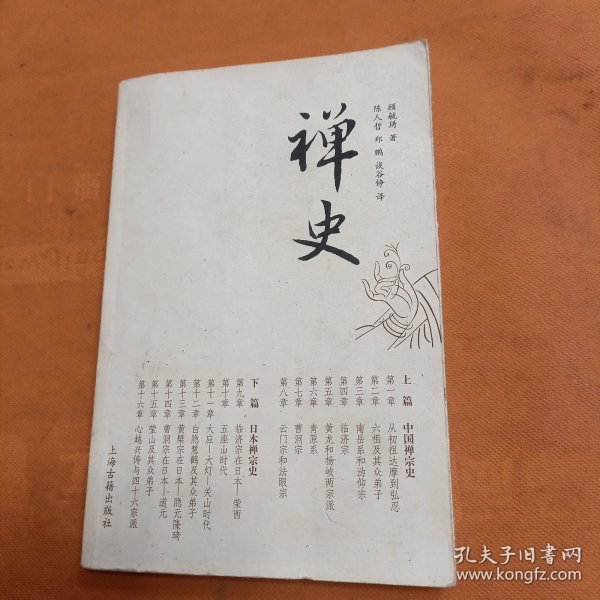 禅史
顾毓琇 著
陈人哲 郑鹏 谈谷铮 译
上篇 中国禅宗史
第一章 从初祖达摩到弘忍
第二章 六祖及其众弟子
第三章 南岳系和沩仰宗
第四章 临济宗
第五章 黄龙和杨岐两宗派
第六章 青原系
第七章 曹洞宗
第八章 云门宗和法眼宗
下篇 日本禅宗史
第九章 临济宗在日本—荣西
第十章 五座山时代
第十一章 大应—大灯—关山时代
第十二章 白隐慧鹤及其众弟子
第十三章 黄檗宗在日本—隐元隆琦
第十四章 曹洞宗在日本—道元
第十五章 莹山及其众弟子
第十六章 心越兴俦与四十六宗派
上海古籍出版社
孔夫子旧书网
www.kongfz.com